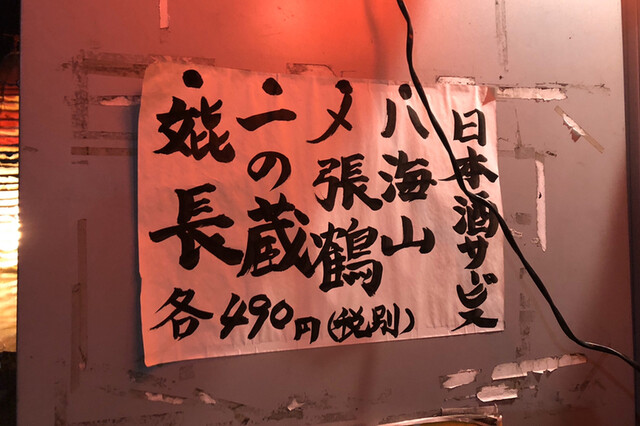 日本酒サービス
・八海山
・〆張鶴
・一の蔵
・娓長
各490円(税別)